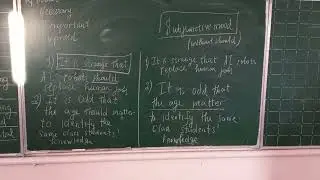 necessary
important
1) It is strange that
AI robot should
replace human jobs
2) It is odd that
the age should matter
to identify the
same class students'
knowledge
Subjunctive mood
(without should)
1) It is strange that AI robots
replace human jobs
2) It is odd that
the age matter
to identify the same
class students'
knowledge